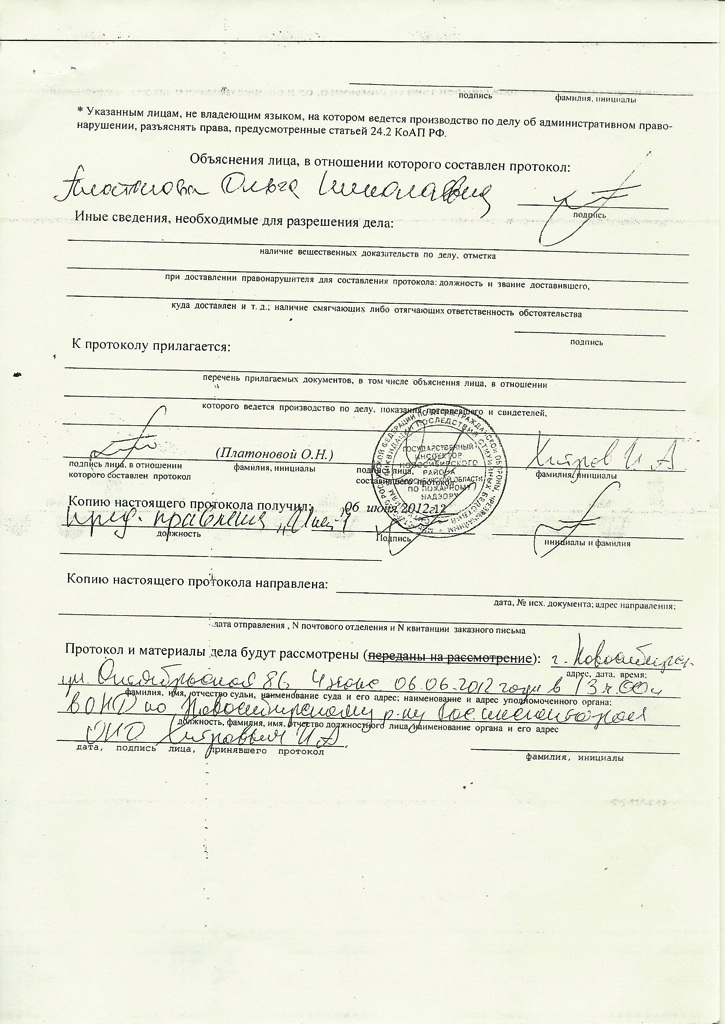 подпись фамилия, инициалы
* Указанным лицам, не владеющим языком, на котором ведется производство по делу об административном право-
нарушении, разъяснять права, предусмотренные статьей 24.2 КоАП РФ.
Объяснения лица, в отношении которого составлен протокол:
Платонова Ольга Николаевна
подпись
Иные сведения, необходимые для разрешения дела:
наличие вещественных доказательств по делу, отметка
при доставлении правонарушителя для составления протокола: должность и звание доставившего,
куда доставлен и т. д.; наличие смягчающих либо отягчающих ответственность обстоятельства
подпись
К протоколу прилагается:
перечень прилагаемых документов, в том числе объяснения лица, в отношении
которого ведется производство по делу, показания потерпевшего и свидетелей,
(Платоновой О.Н.) И А
подпись лица, в отношении фамилия, инициалы подпись лица, фамилия, инициалы
которого составлен протокол составившего протокол
ГОСУДАРСТВЕННЫЙ
ИНСПЕКТОР
НОВОСИБИРСКОГО
РАЙОНА
НОВОСИБИРСКОЙ ОБЛАСТИ
ПО ПОЖАРНОМУ
НАДЗОРУ
Копию настоящего протокола получил: 06 июня 2012г.
пред. правления
должность Подпись инициалы и фамилия
Копию настоящего протокола направлена:
дата, № исх. документа; адрес направления;
дата отправления , N почтового отделения и N квитанции заказного письма
Протокол и материалы дела будут рассмотрены (переданы на рассмотрение): г. Новосибирск.
адрес, дата, время;
ул. Октябрьская 86, 4 этаж 06.06.2012 года в 13 ч. 00 м
фамилия, имя, отчество судьи, наименование суда и его адрес; наименование и адрес уполномоченного органа:
в ОНД по Новосибирскому р-ну
должность, фамилия, имя, отчество должностного лица, наименование органа и его адрес
И А
дата, подпись лица, принявшего протокол фамилия, инициалы